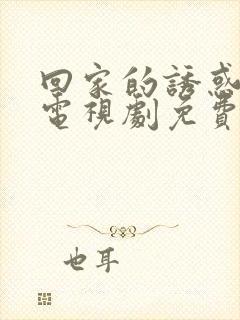 回家的誘惑
電視劇免費
也耳